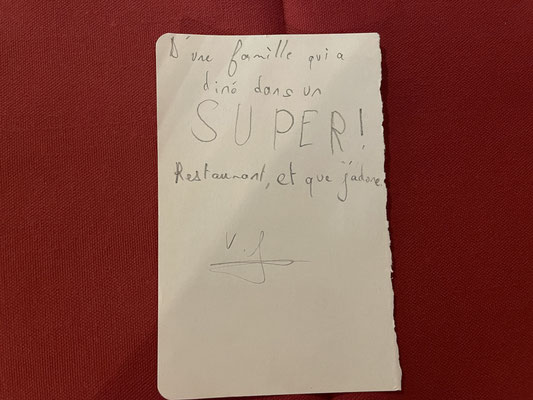 D'une famille qui a
diné dans un
SUPER!
Restaurant, et que j'adore
V.